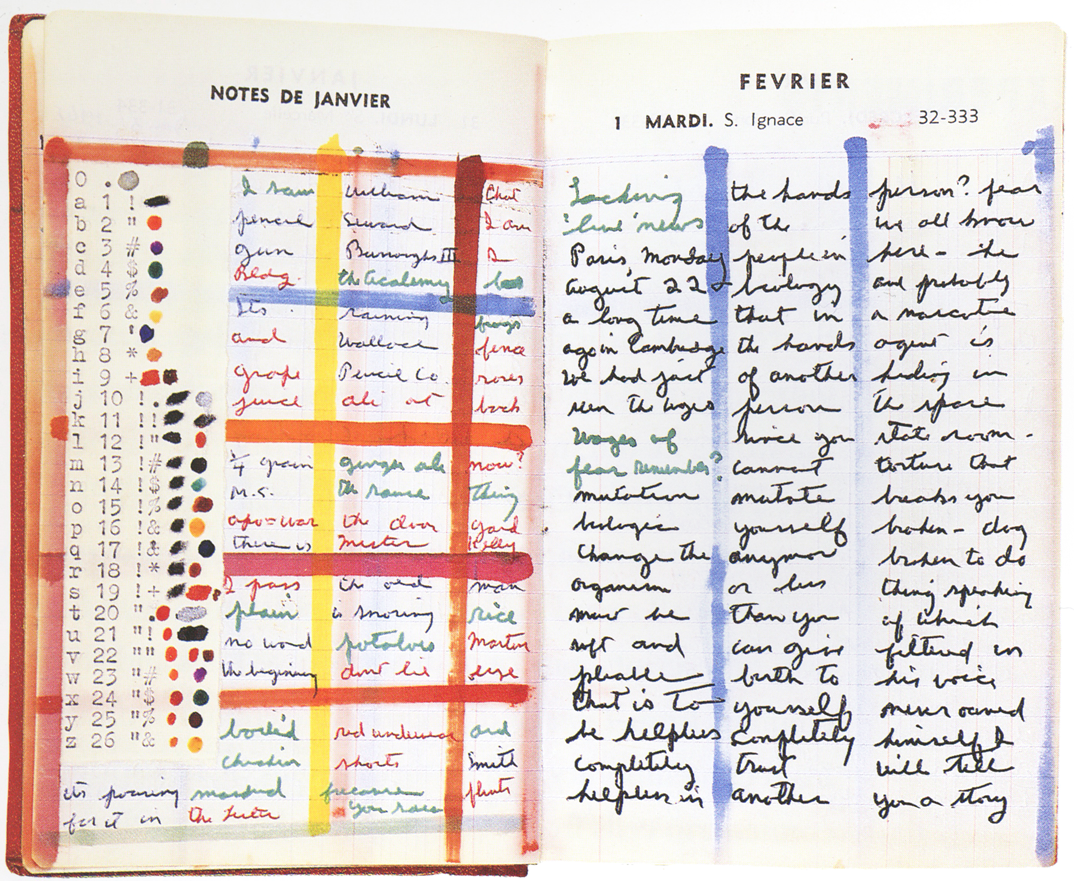 NOTES DE JANVIER
0 .
a 1 !
b 2 "
c 3 #
d 4 $
e 5 %
f 6 &
g 7 '
h 8 *
i 9 +
j 10 !.
k 11 !!
l 12 !"
m 13 !#
n 14 !$
o 15 !%
p 16 !&
q 17 !&
r 18 !*
s 19 !+
t 20 ".
u 21 "!
v 22 ""
w 23 "#
x 24 "$
y 25 "%
z 26 "&
its pouring
for it in
I saw
pencil
gun
Bldg.
Its
and
grape
juice
1/4 grain
M.S.
apo=war
there is
I pass
plain
no word
the beginning
boiled
chicken
mashed
the
William
Seward
Burroughs III
the academy
raining
Wallace
Pencil Co.
ale at
ginger ale
the same
the door
Mister
the old
is snoring
potatoes
dont lie
red underwear
shorts
because
you
Chat
I am
fence
roses
back
now?
thing
yard
Kelly
man
rice
Martin
else
and
Smith
FEVRIER
1 MARDI. S. Ignace 32-333
Lacking
'live' news
Paris Monday
August 22
a long time
ago in Cambridge
We had just
seen the wages
Wages of
fear remember?
mutation
biologic
change the
organism
must be
soft and
pliable
that is to
be helpless
completely
helpless in
the hands
of the
people in
biology
that in
the hands
of another
person
since you
cannot
mutate
yourself
anymor
or less
than you
can give
birth to
yourself
completely
trust
another
person? fear
we all know
here - the
and probably
a narcotic
agent is
hiding in
the space
state room -
torture that
breaks you
broken - dog
broken to do
thing speaking
of which
filtered in
his voice
never owned
himself I
will tell
you a story